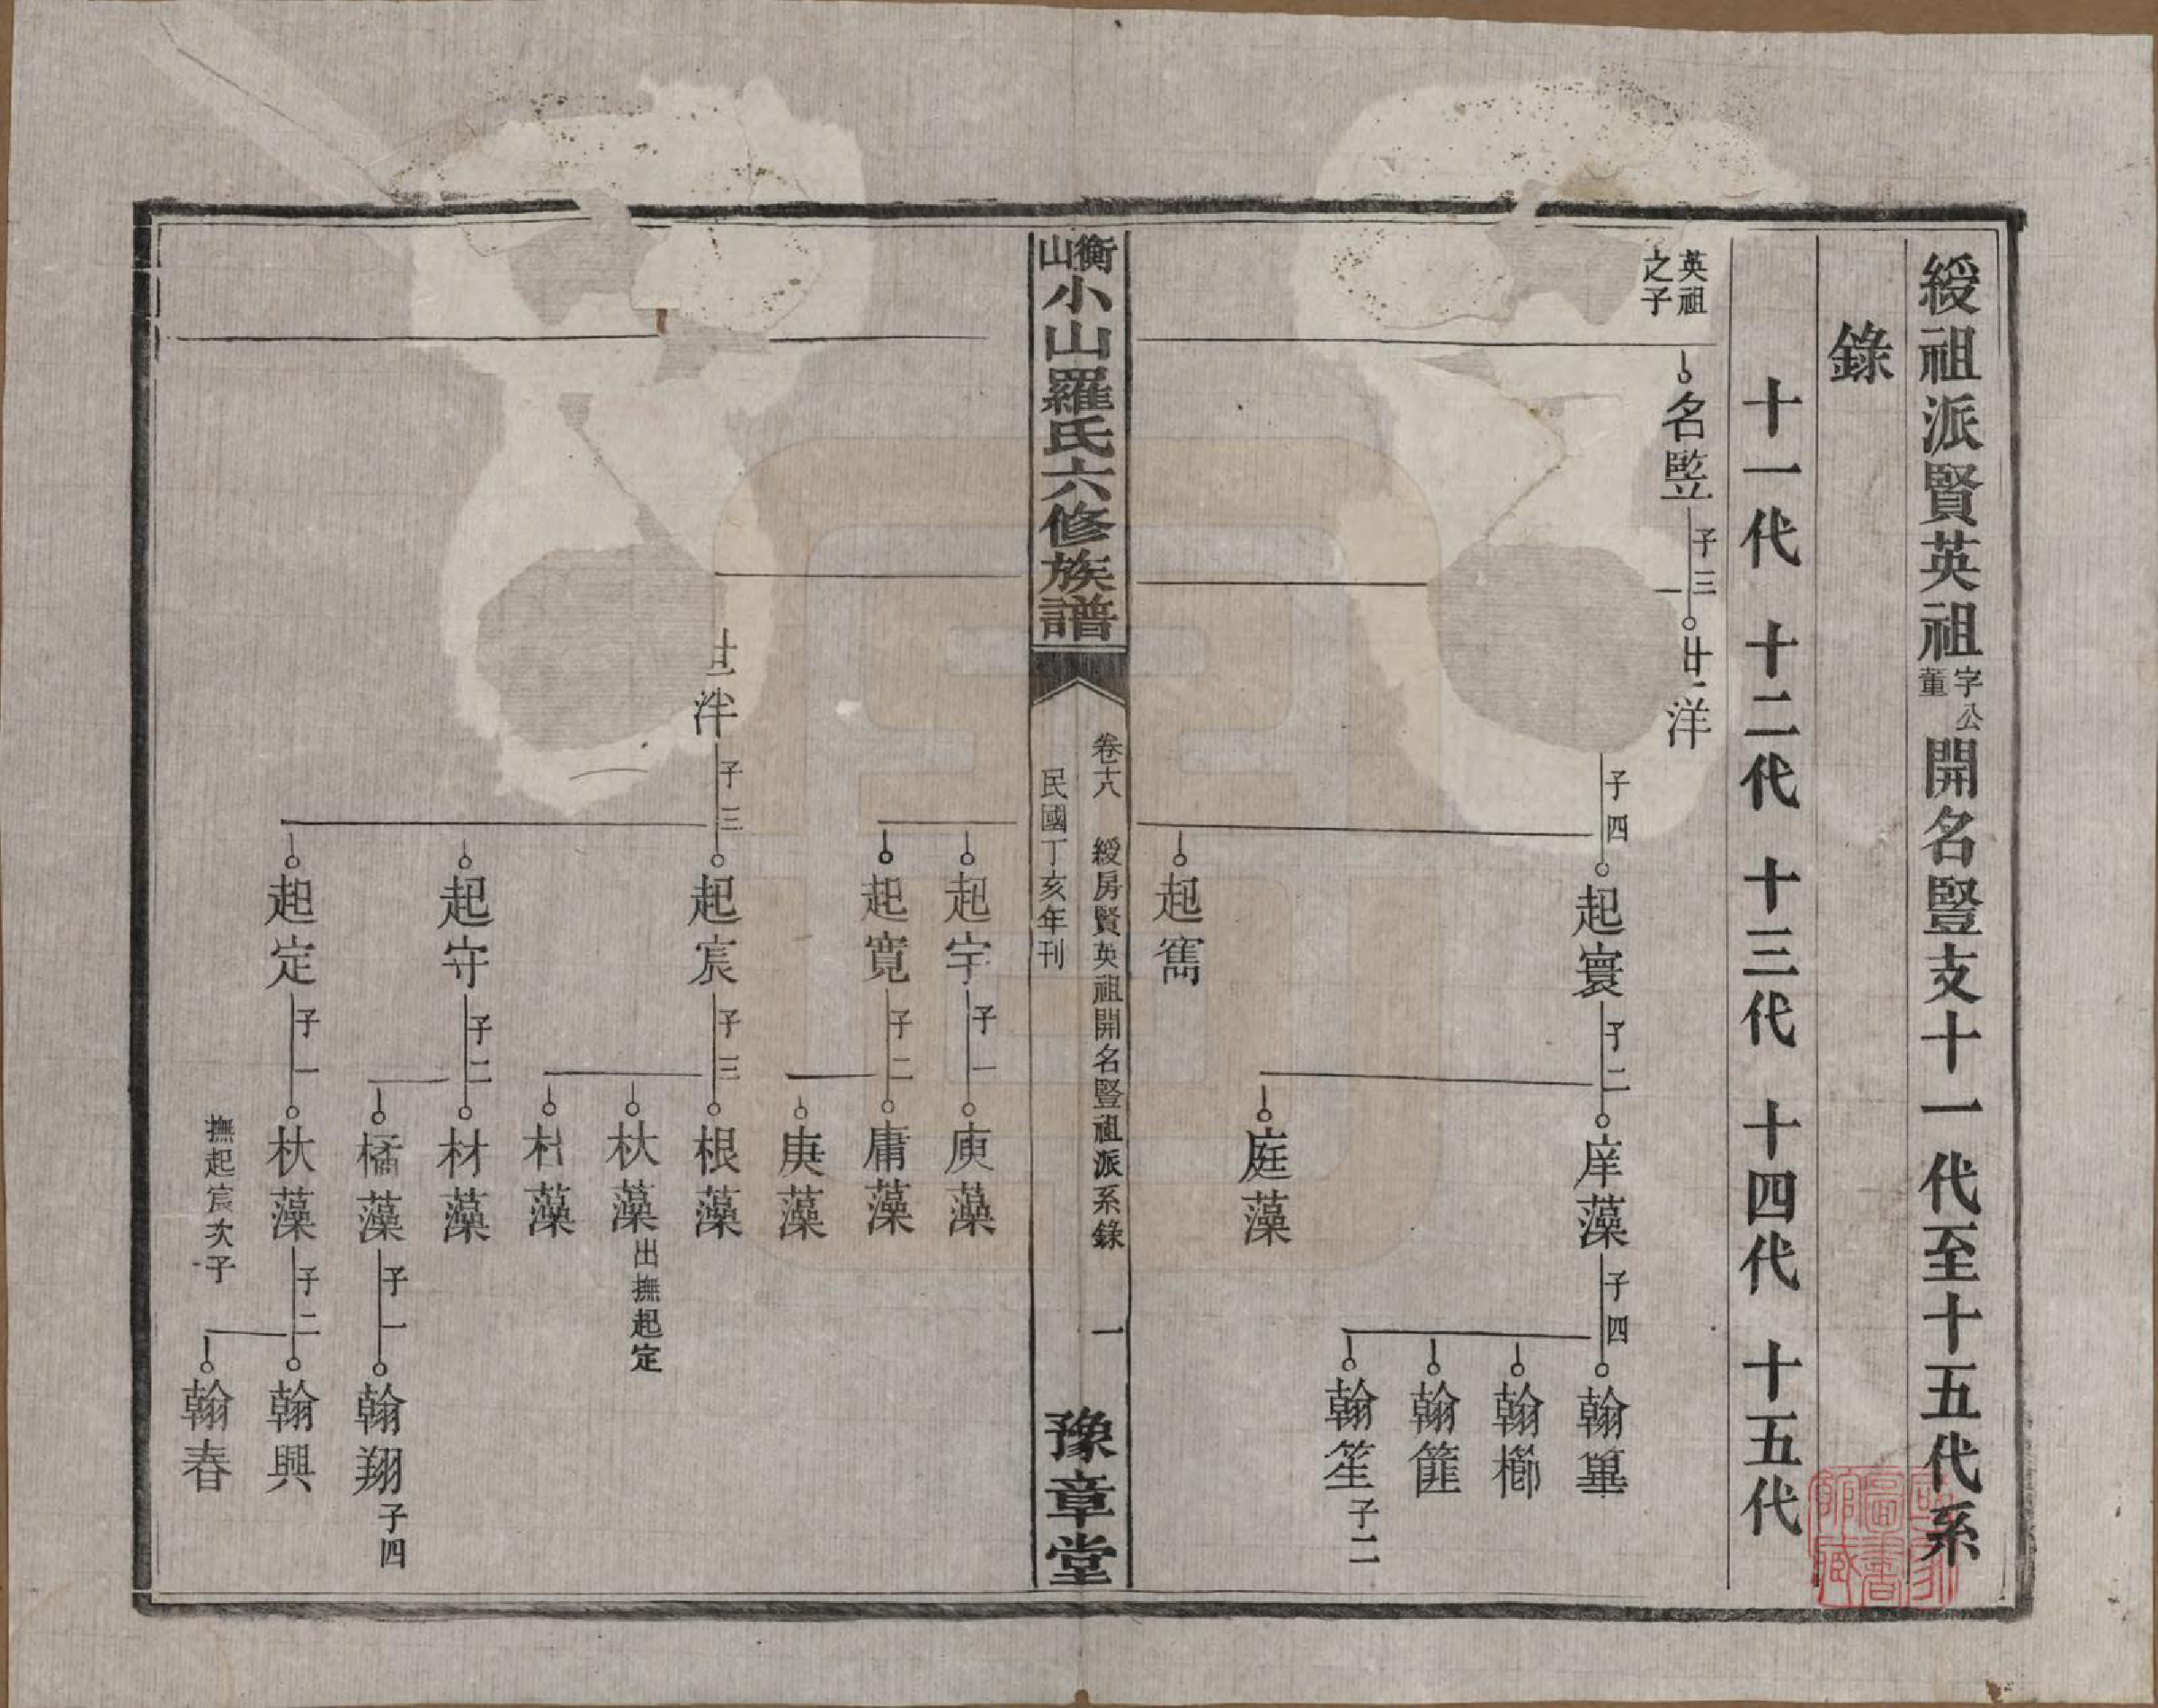 綬祖派賢英祖字董公開名豎支十一代至十五代系
錄
十一代 十二代 十三代 十四代 十五代
英祖之子
名豎 子三
世洋
子四
起寰 子二
庠藻 子四
翰篳
翰櫛
翰篚
翰笙 子二
庭藻
起寯
衡山小山羅氏六修族譜
卷十八 綬房賢英祖開名豎祖派系錄 一
民國丁亥年刊
豫章堂
起宇 子一
庾藻
起寬 子二
庸藻
庚藻
世泮 子三
起宸 子三
根藻
杕藻 出撫起定
杜藻
起守 子二
材藻
橘藻 子一
翰翔 子四
起定 子一
杕藻 子二
撫起宸次子
翰興
翰春